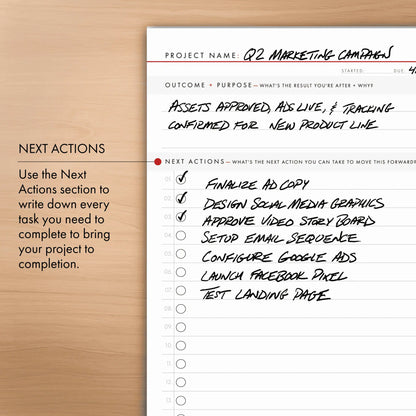 PROJECT NAME: Q2 MARKETING CAMPAIGN
STARTED: DUE: 4
OUTCOME + PURPOSE — WHAT'S THE RESULT YOU'RE AFTER + WHY?
ASSETS APPROVED, ADS LIVE, & TRACKING
CONFIRMED FOR NEW PRODUCT LINE
NEXT ACTIONS
Use the Next
Actions section to
write down every
task you need to
complete to bring
your project to
completion.
NEXT ACTIONS — WHAT'S THE NEXT ACTION YOU CAN TAKE TO MOVE THIS FORWARD
01 FINALIZE AD COPY
02 DESIGN SOCIAL MEDIA GRAPHICS
03 APPROVE VIDEO STORY BOARD
04 SETUP EMAIL SEQUENCE
05 CONFIGURE GOOGLE ADS
06 LAUNCH FACEBOOK PIXEL
07 TEST LANDING PAGE
08
09
10
11
12
13